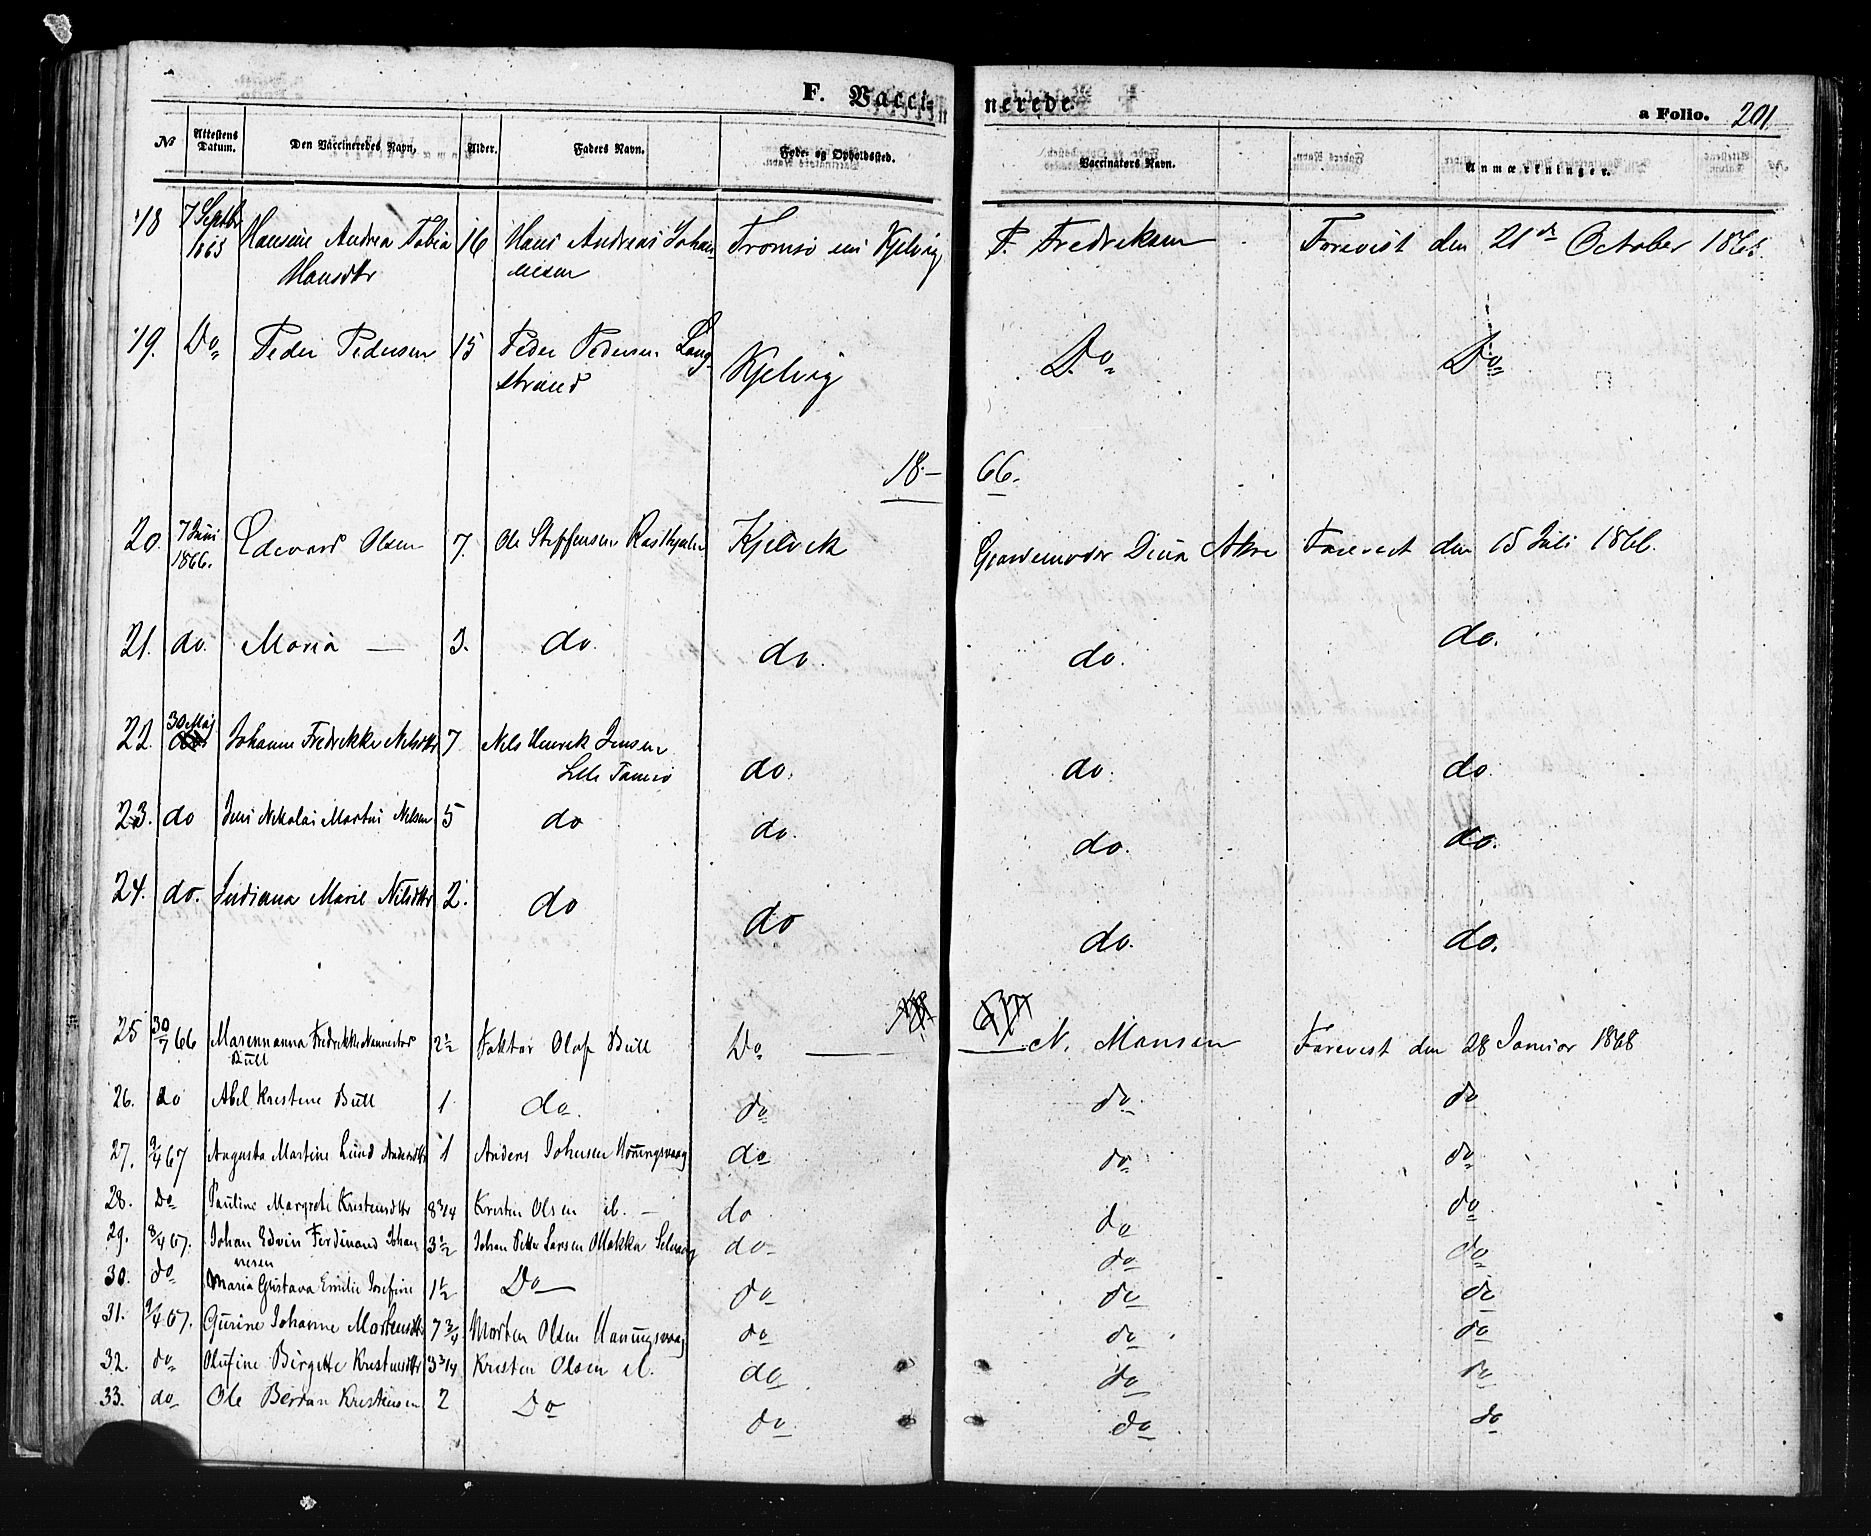 F. Vaccinerede
a Folio. 201
No Attestens Datum. Den Vaccineredes Navn. Alder. Faders Navn. Føde- og Opholdssted. Vaccinators Navn. Anmærkninger.
18 7 Septbr 1865 Hansine Andrea Tobia Hansdtr 16 Hans Andreas Johannesen Tromsø Kjelvig P. Fredriksen Forevist den 21de October 1865.
19. Do Peder Pedersen 15 Peder Pedersen Langstrand Kjelvig Do Do
18-66.
20. 7 Juni 1866. Edevard Olsen 7. Ole Steffensen Kjelvik Gjordemoder Dina Akre Forevist den 15 Juli 1866.
21. do. Maria — 3. do. do. do. do.
22. 30 Maj Johanne Fredrikke Nilsdtr 7 Nils Henrik Jensen Lille Tamsø do. do. do.
23. do Jens Nikolai Martin Nilsen 5 do do. do. do.
24. do. Indiana Marie Nilsdtr 2. do do do. do.
25 30/7 66 Fredrikke Bull 2½ Faktor Olaf Bull Do — N. Hansen Forevist den 28 Januar 1868
26. do Abel Kristine Bull 1 do. do do do
27. 9/4 67 Augusta Martine Lund Andersdtr 1 Anders Johnsen Honingsvaag do do do
28. Do Pauline Margrete Kristensdtr 8 3/4 Kristen Olsen ib. — do do do
29. 8/4 67. Johan Edvin Ferdinand Johannesen 3½ Johan Petter Larsen do do do
30. do Maria Gustava Emilie Josefine 1½ Do do do do
31. 9/4 67. Gurine Johanne Mortensdtr 7 3/4 Morten Olsen Honingsvaag do do do
32. do Olufine Birgitte Kristensdtr 3 3/4 Kristen Olsen ib. do do do
33. do Ole Berdan Kristensen 2 Do do do do